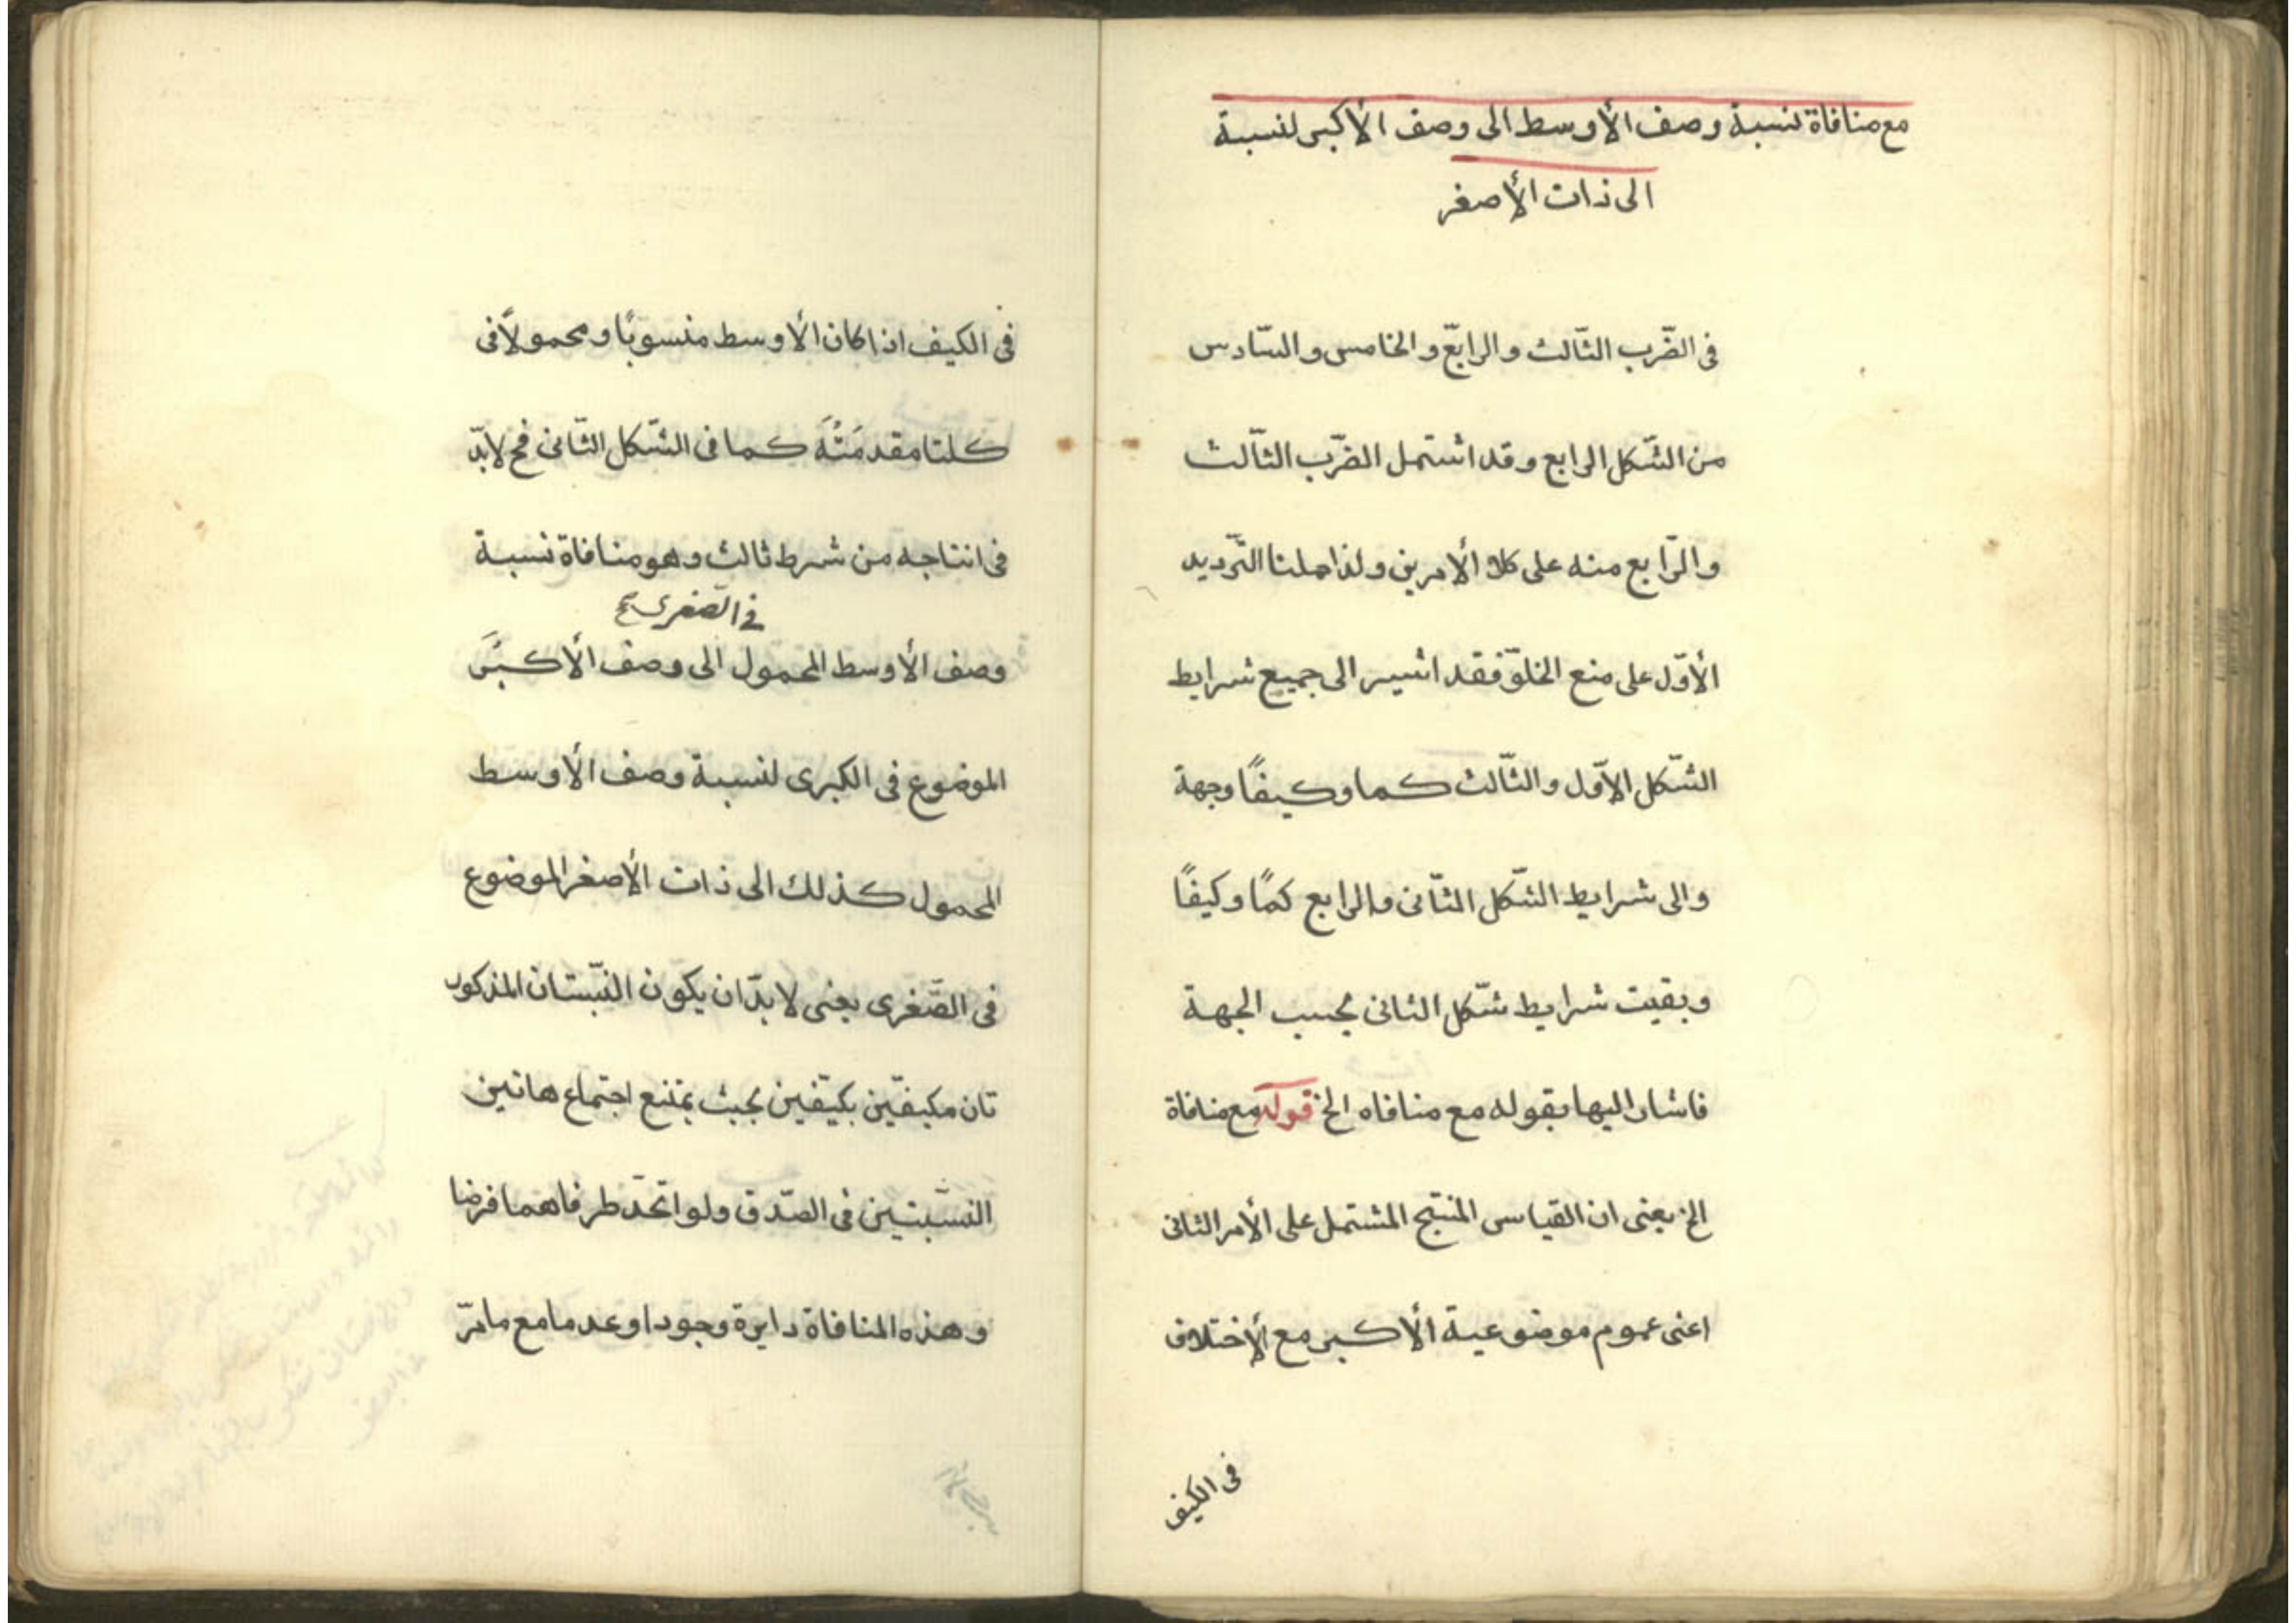 مع منافاة نسبة وصف الأوسط الى وصف الأكبر لنسبة
الى ذات الأصغر
فى الضّرب الثّالث والرابع والخامس والسّادس
من الشّكل الرابع وقد اشتمل الضّرب الثّالث
والرّابع منه على كلا الأمرين ولذا حملنا التّرديد
الأوّل على منع الخلوّ فقد اشير الى جميع شرايط
الشّكل الاوّل والثّالث كما وكيفًا وجهة
والى شرايط الشّكل الثّانى والرابع كمًا وكيفًا
وبقيت شرايط شّكل الثانى بحسب الجهة
فاشار اليها بقوله مع منافاه الخ قوله مع منافاة
الخ يعنى ان القياس المنتج المشتمل على الأمر الثانى
اعنى عموم موضوعية الأكبر مع الأختلاف
فى الكيف
فى الكيف اذا كان الأوسط منسوبًا ومحمولاً فى
كلتا مقدمَتَيْه كما فى الشّكل الثّانى فح لابدّ
فى انتاجه من شرط ثالث وهو منافاة نسبة
فى الصّغرى صح
وصف الأوسط المحمول الى وصف الأكبر
الموضوع فى الكبرى لنسبة وصف الأوسط
المحمول كذلك الى ذات الأصغر الموضوع
فى الصّغرى يعنى لا بدّ ان يكون النّسبتان المذكور
تان مكيفّين بكيّفين بحيث يمتنع اجتماع هاتين
النسّبتين فى الصّدق ولو اتّحد طرفاهما فرضا
وهذه المنافاة دايرة وجودا وعدما مع ما مرّ